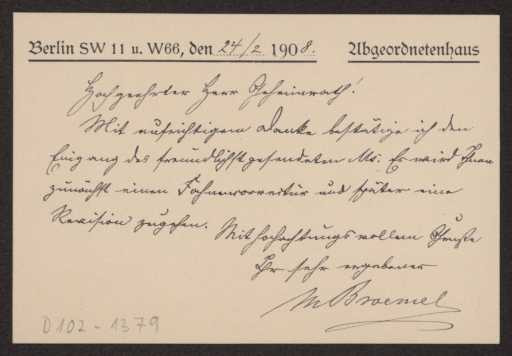 Berlin SW 11 u. W66, den 24/2 1908. Abgeordnetenhaus
Hochgeehrter Herr Geheimrath!
Mit aufrichtigem Danke bestätige ich den
Eingang des freundlichst gesendeten Ms. Es wird Ihnen
zunächst einen Fahnencorrectur und später eine
Revision zugehen. Mit hochachtungsvollem Gruße
Ihr sehr ergebener
M Broemel
D 102 - 1379